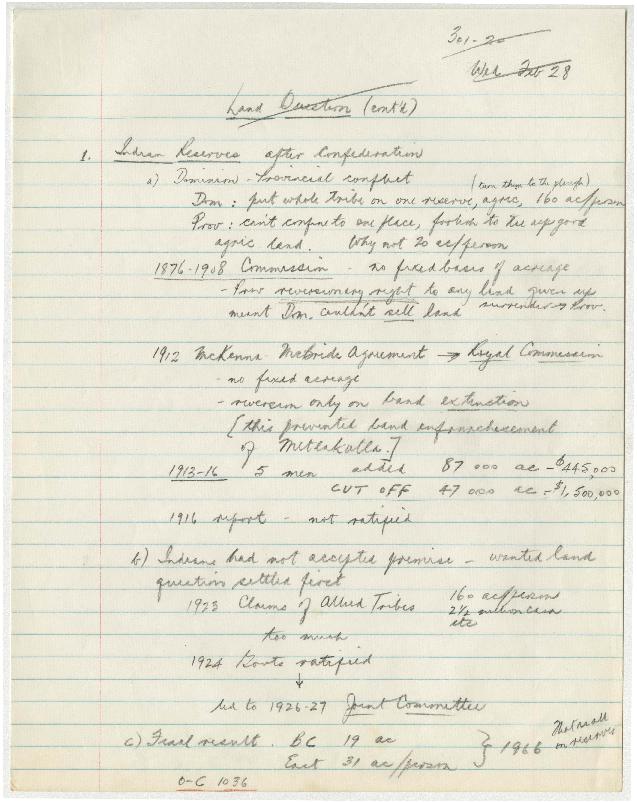 301-20
Wed. Feb 28
Land Question (cont'd)
1. Indian Reserves after Confederation
a) Dominion - Provincial conflict (turn them to the plough)
Dom: put whole tribe on one reserve, agric, 160 ac/person
Prov: can't confine to one place, foolish to tie up good
agric land. Why not 20 ac/person
1876-1908 Commission - no fixed basis of acreage
- Prov reversionary right to any land given up
meant Dom. couldn't sell land surrender → Prov.
1912 McKenna-McBride Agreement → Royal Commission
- no fixed acreage
- reversion only on band extinction
[this prevented band enfranchisement
of Metlakatla.]
1913-16 5 men added 87 000 ac - $445,000
CUT OFF 47 000 ac - $1,500,000
1916 report - not ratified
b) Indians had not accepted premise - wanted land
question settled first
1923 Claims of Allied Tribes 160 ac/person
2½ million cash
etc
too much
1924 Govts ratified
↓
led to 1926-27 Joint Committee
c) Final result. BC 19 ac
East 31 ac/person } 1966 Not all on reserves
O-C 1036